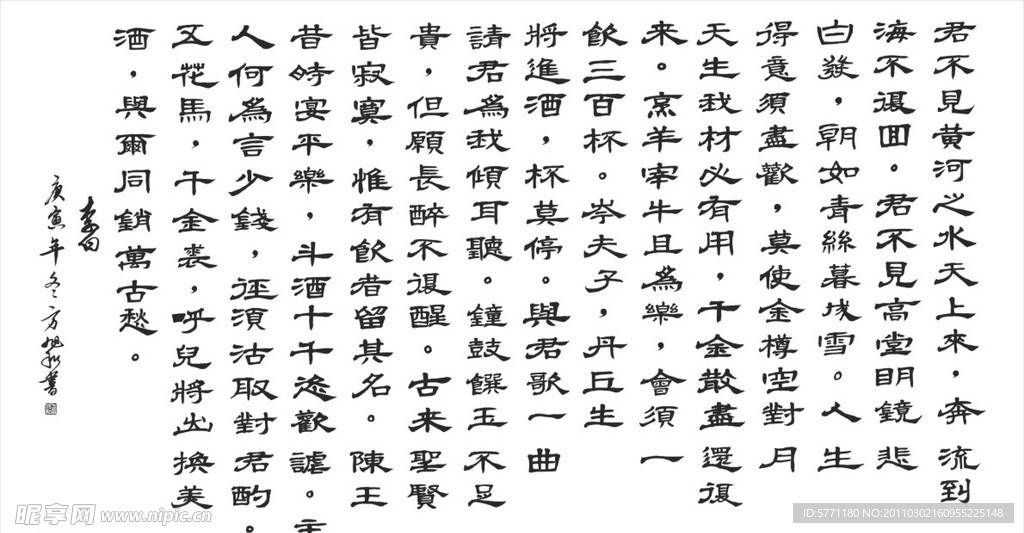 君不見黄河之水天上來，奔流到
海不復回。君不見高堂明鏡悲
白發，朝如青絲暮成雪。人生
得意須盡歡，莫使金樽空對月
天生我材必有用，千金散盡還復
來。烹羊宰牛且為樂，會須一
飲三百杯。岑夫子，丹丘生
將進酒，杯莫停。與君歌一曲
請君為我傾耳聽。鐘鼓饌玉不足
貴，但願長醉不復醒。古来聖賢
皆寂寞，惟有飲者留其名。陳王
昔時宴平樂，斗酒十千恣歡謔。主
人何為言少錢，徑須沽取對君酌。
五花馬，千金裘，呼兒將出換美
酒，與爾同銷萬古愁。
李白
庚寅年冬方書
昵享网 www.nipic.cn
ID:5771180 NO:20110302160955225148